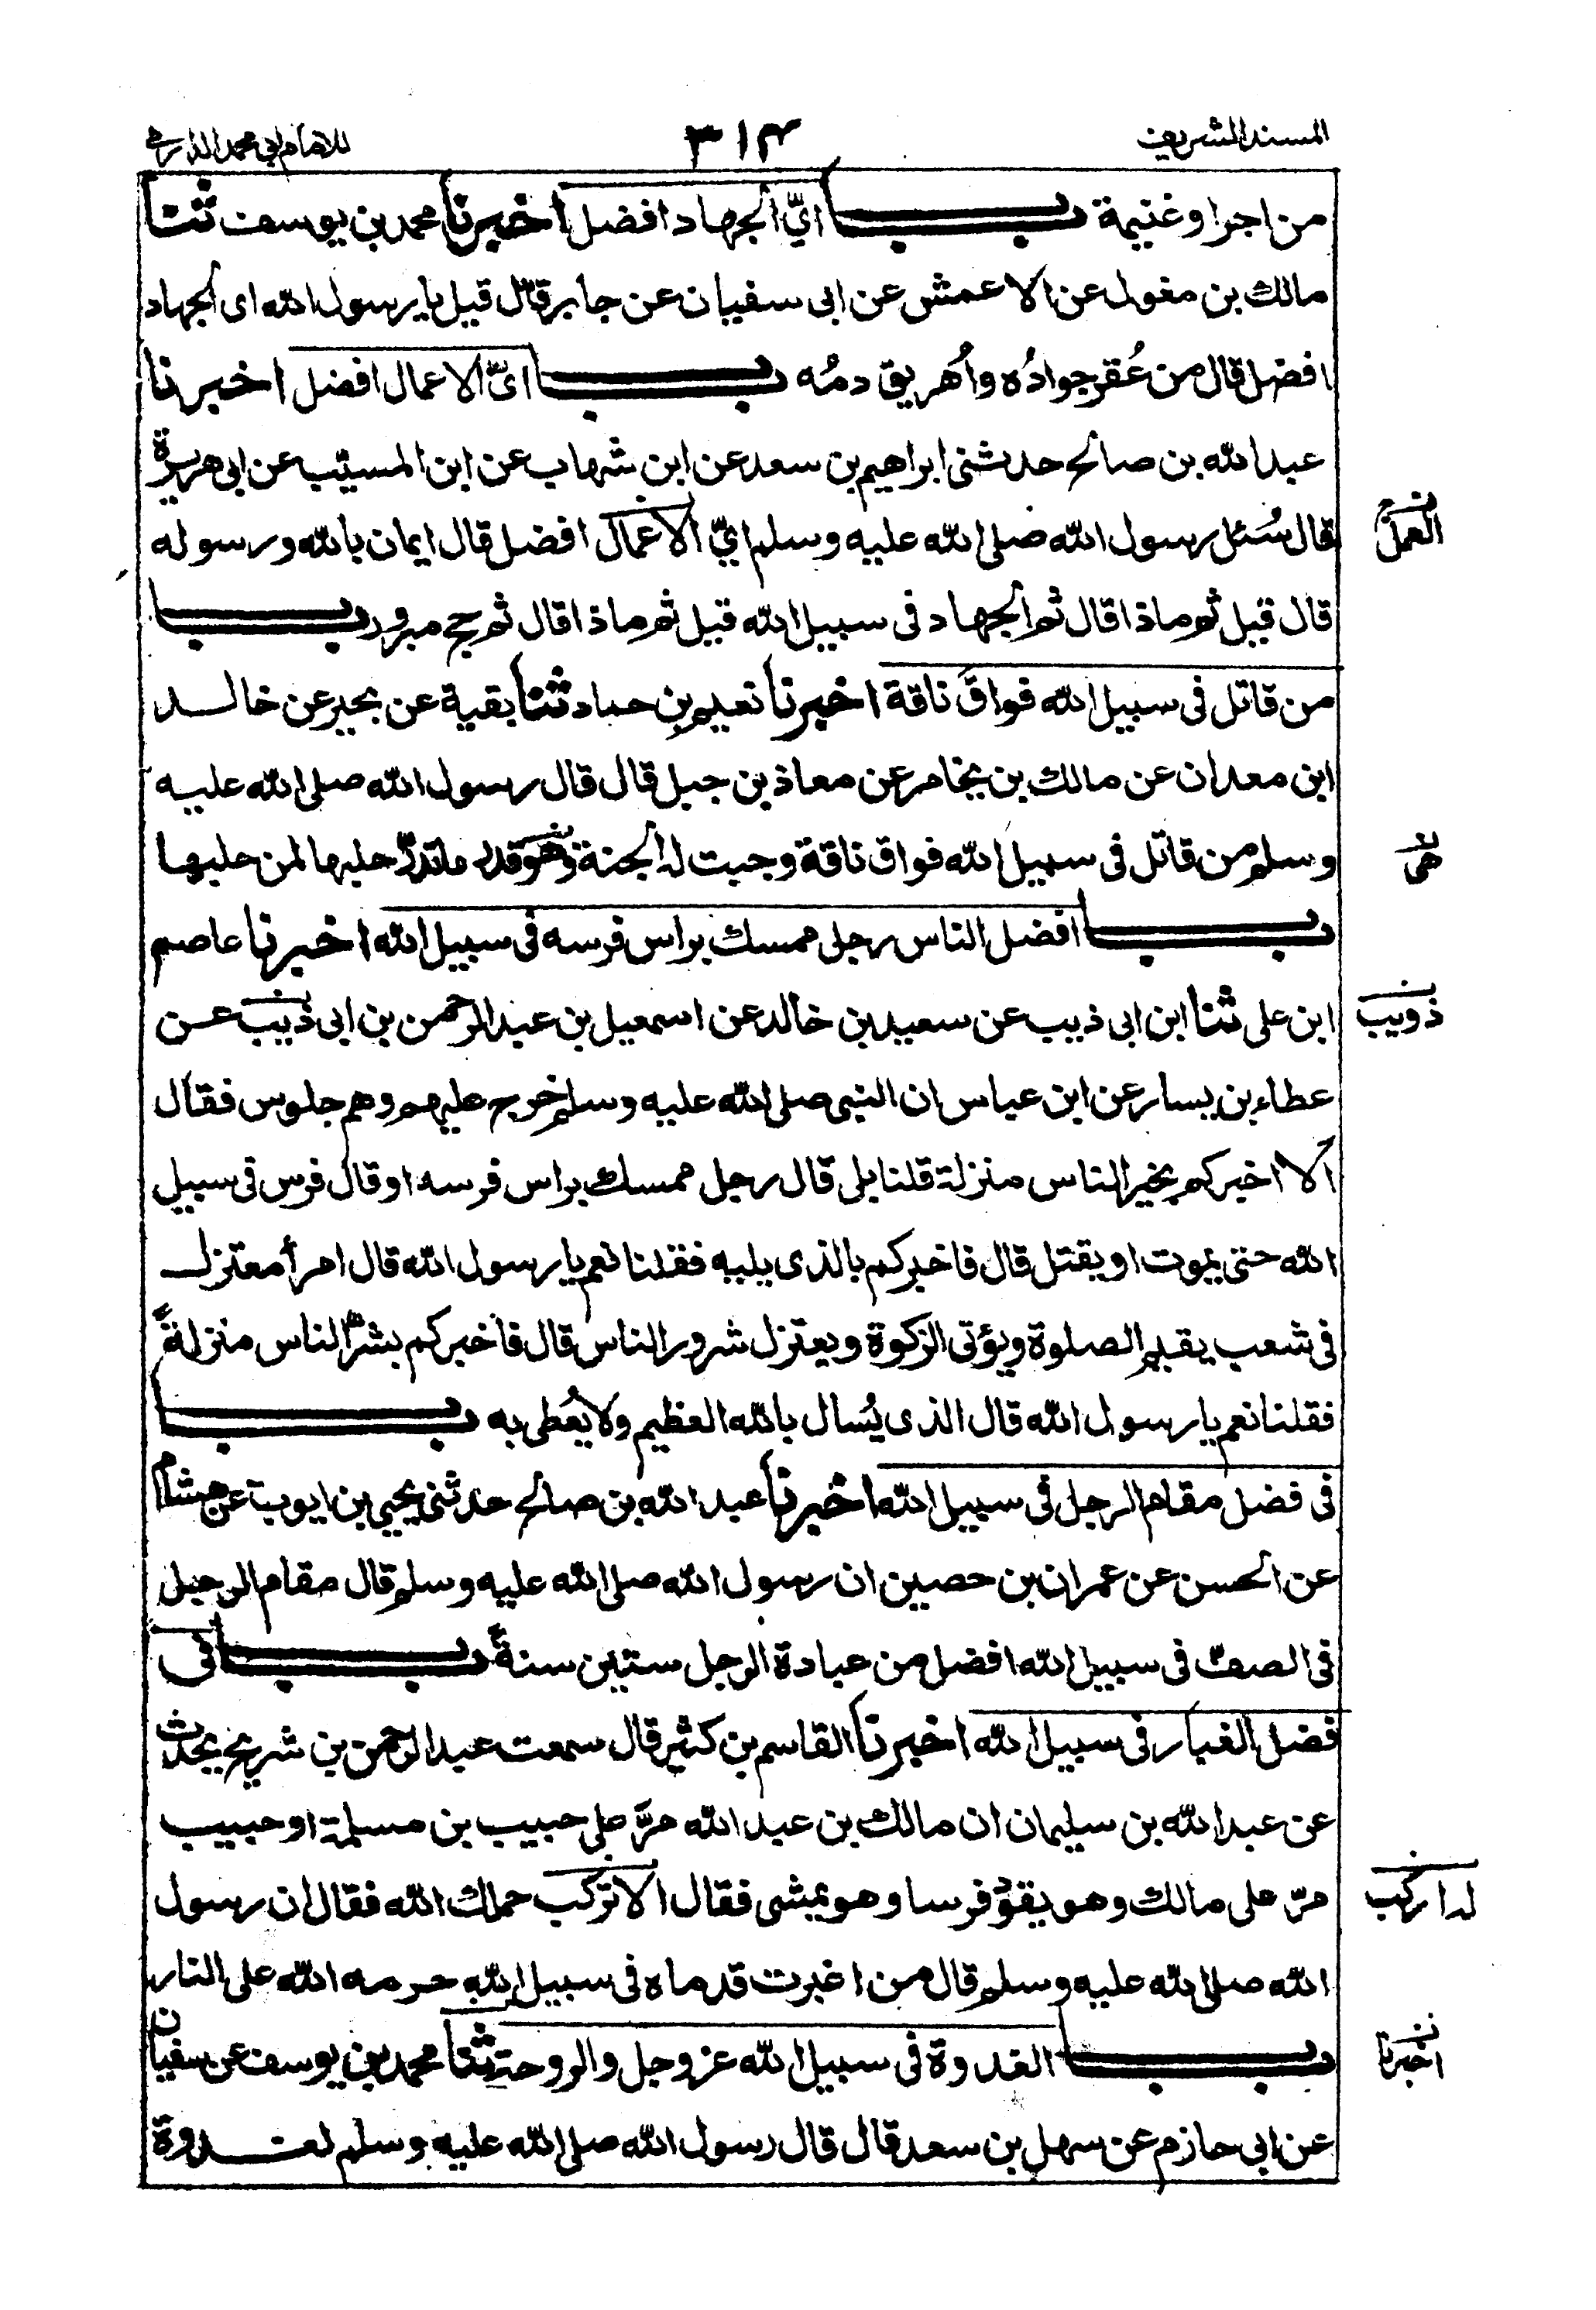 المسند الشريف ٣١۴ للامام ابي محمد الدارمي
من اجر او غنيمة باب ايّ الجهاد افضل اخبرنا محمد بن يوسف ثنا
مالك بن مغول عن الاعمش عن ابى سفيان عن جابر قال قيل يا رسول الله اى الجهاد
افضل قال من عُقر جوادُه واُهريق دمُه باب اىّ الاعمال افضل اخبرنا
عبد الله بن صالح حدثنى ابراهيم بن سعد عن ابن شهاب عن ابن المسيّب عن ابى هريرة
قال سُئل رسول الله صلى الله عليه وسلم ايّ الاعمال افضل قال ايمان بالله ورسوله
العمل
قال قيل ثم ماذا قال ثم الجهاد فى سبيل الله قيل ثم ماذا قال ثم حج مبرور باب
من قاتل فى سبيل الله فواقَ ناقة اخبرنا نعيم بن حماد ثنا بقية عن بحير عن خالد
ابن معدان عن مالك بن يخامر عن معاذ بن جبل قال قال رسول الله صلى الله عليه
وسلم من قاتل فى سبيل الله فواق ناقة وجبت له الجنة وهو قدر ما تدرّ حلبها لمن حلبها
هى
باب افضل الناس رجل ممسك براس فرسه فى سبيل الله اخبرنا عاصم
ابن على ثنا ابن ابى ذيب عن سعيد بن خالد عن اسمعيل بن عبد الرحمن بن ابى ذيب عن
ذويب
عطاء بن يسار عن ابن عباس ان النبى صلى الله عليه وسلم خرج عليهم وهم جلوس فقال
الا اخبركم بخير الناس منزلة قلنا بلى قال رجل ممسك براس فرسه او قال فرس فى سبيل
الله حتى يموت او يقتل قال فاخبركم بالذى يليه فقلنا نعم يا رسول الله قال امرأ معتزل
فى شعب يقيم الصلوة ويؤتى الزكوة ويعتزل شرور الناس قال فاخبركم بشرّ الناس منزلةً
فقلنا نعم يا رسول الله قال الذى يُسال بالله العظيم ولا يُعطى به باب
فى فضل مقام الرجل فى سبيل الله اخبرنا عبد الله بن صالح حدثنى يحيى بن ايوب عن هشام
عن الحسن عن عمران بن حصين ان رسول الله صلى الله عليه وسلم قال مقام الرجل
فى الصفّ فى سبيل الله افضل من عبادة الرجل ستين سنةً باب فى
فضل الغبار فى سبيل الله اخبرنا القاسم بن كثير قال سمعت عبد الرحمن بن شريح يحدث
عن عبد الله بن سليمان ان مالك بن عبد الله مرَّ على حبيب بن مسلمة او حبيب
مرّ على مالك وهو يقود فرسا وهو يمشى فقال الا تركب حملك الله فقال ان رسول
له اركب
الله صلى الله عليه وسلم قال من اغبرت قدماه فى سبيل الله حرمه الله على النار
باب الغدوة فى سبيل الله عز وجل والروحة ثنا محمد بن يوسف عن سفيان
اخبرنا
عن ابى حازم عن سهل بن سعد قال قال رسول الله صلى الله عليه وسلم لغدوة